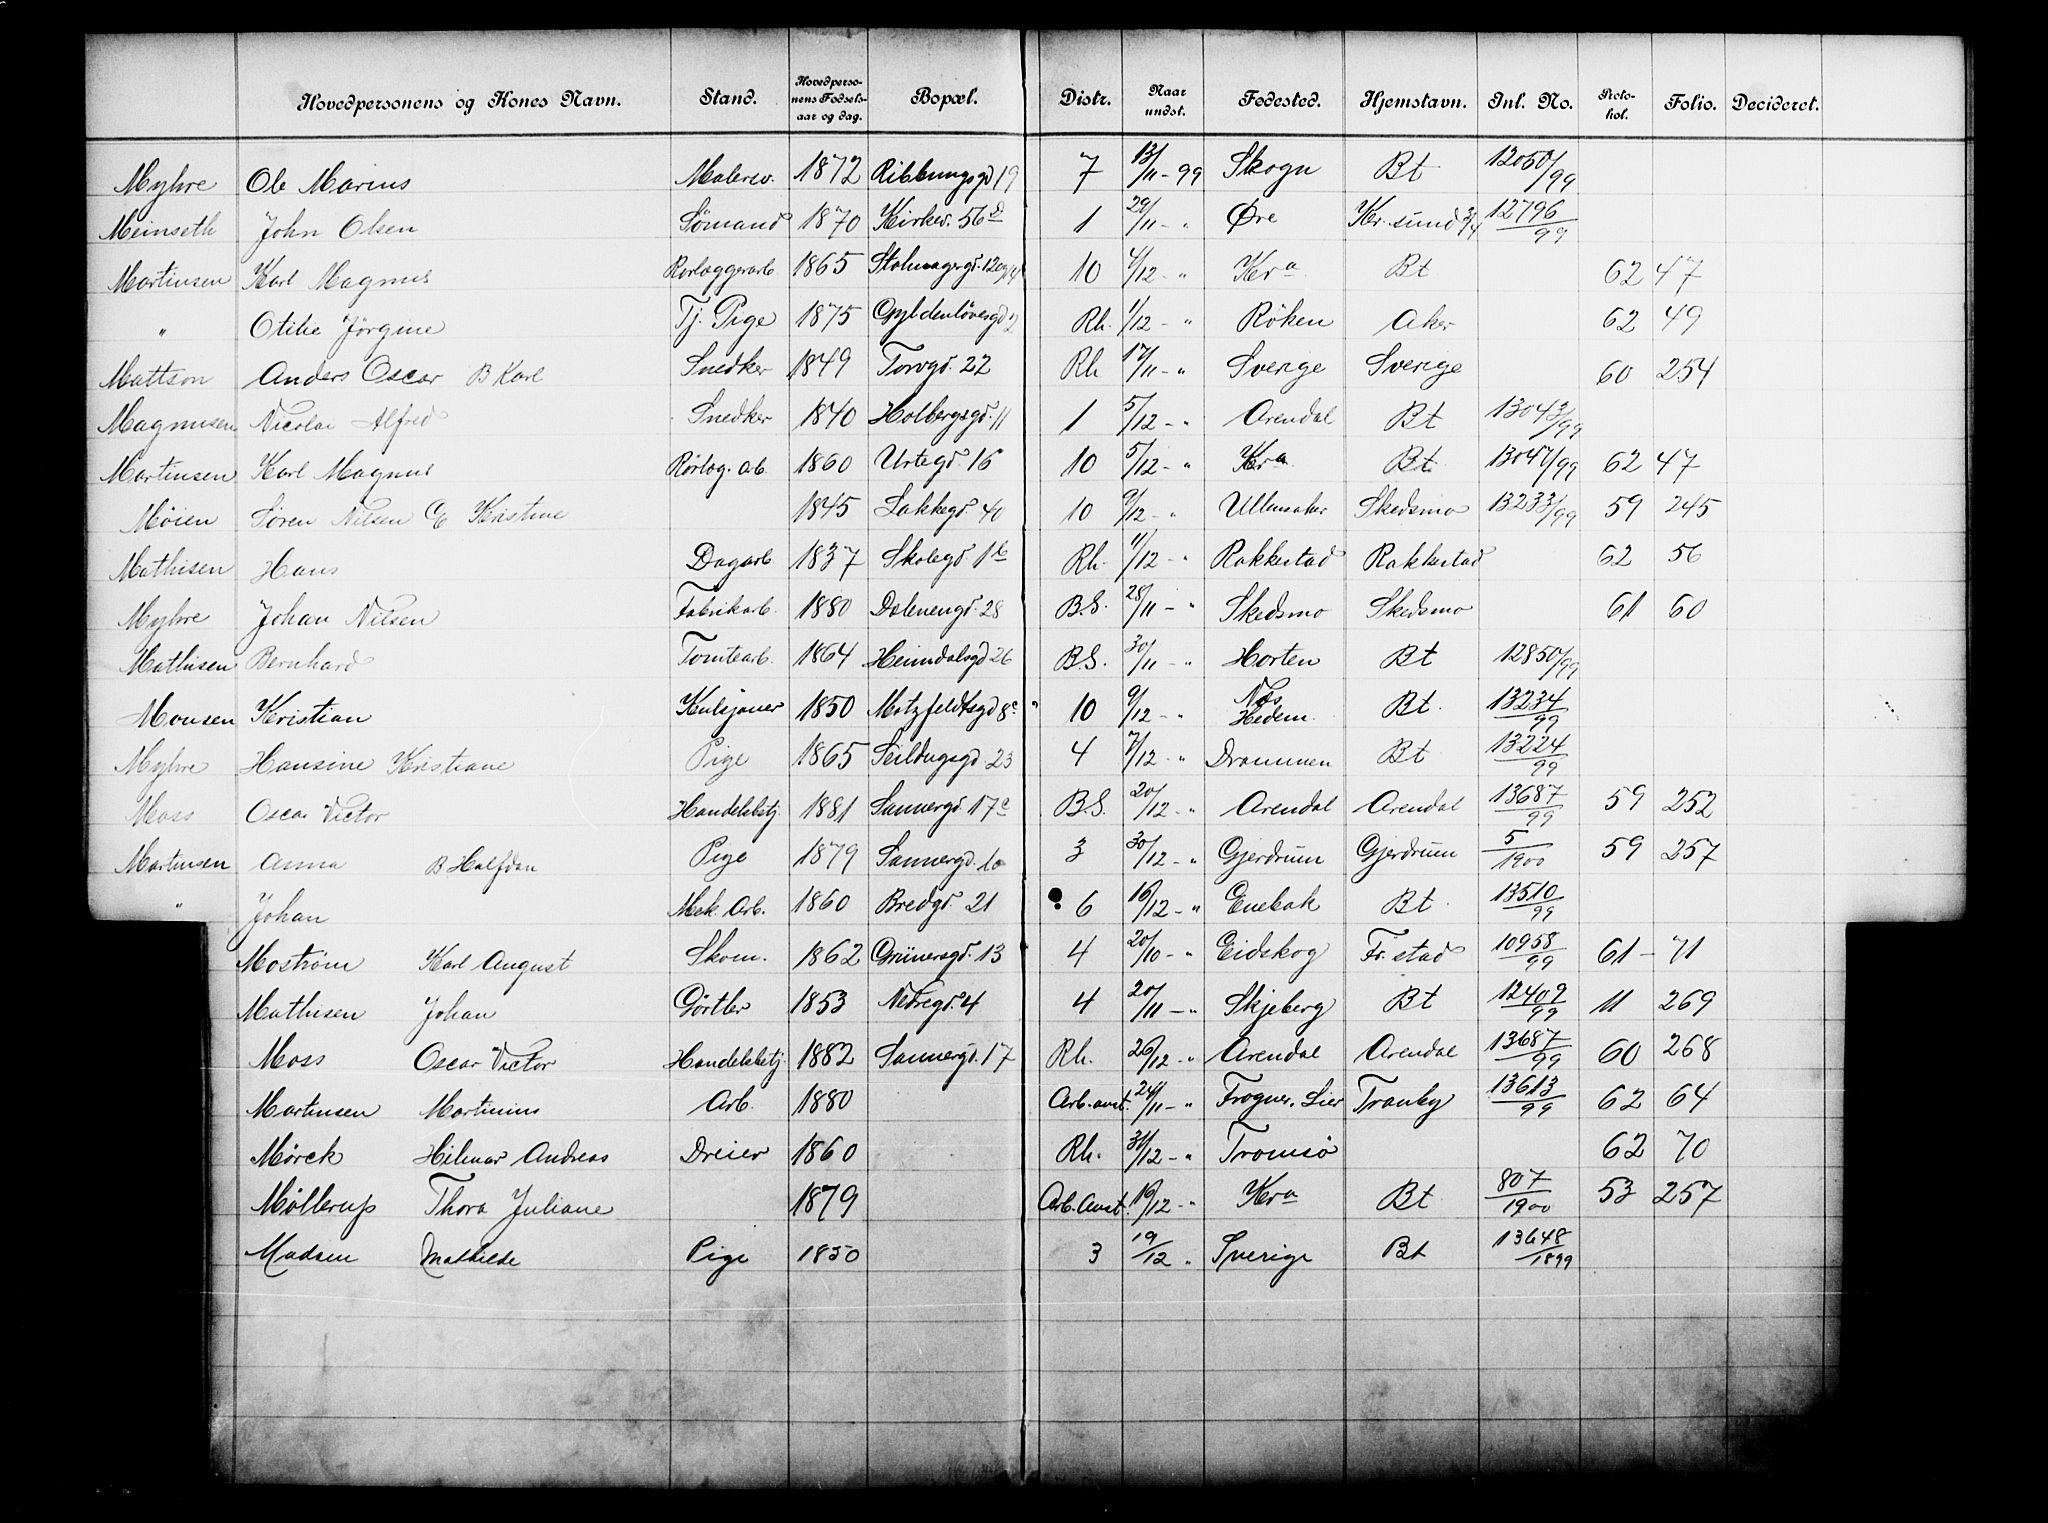 Hovedpersonens og Kones Navn. Stand. Hovedperso-nens Fødsels-aar og dag. Bopæl. Distr. Naar undst. Fødested. Hjemstavn. Inl. No. Proto-kol. Folio. Decideret.
Myhre Ole Marius Malersv. 1872 Ribbungsgd 19 7 13/11 - 99 Skogn Bt 12050/99
Meinseth John Olsen Sømand 1870 Kirkev. 56 d 1 29/11 - " Øre Kr. sund 3/4 12796/99
Martinsen Karl Magnus Rørlæggerarb 1865 Stolmagergd. 10 4/12 - " Kra Bt 62 47
" Otilie Jørgine Tj. Pige 1875 Gyldenløvesgd 2 Rh. 1/12 - " Røken Aker 62 49
Mattson Anders Oscar B Karl Snedker 1849 Torvgd. 22 Rh 17/11 - " Sverige Sverige 60 254
Magnusen Nicolai Alfred Snedker 1840 Holbergsgd. 11 1 5/12 - " Arendal Bt 13043/99
Martinsen Karl Magnus Rørlæg. ab. 1860 Urtegd. 16 10 5/12 - " Kra Bt. 13047/99 62 47
Møien Søren Nilsen E Kristine 1845 Lakkegd 40 10 9/12 - " Ullensaker Skedsmo 13233/99 59 245
Mathisen Hans Dagarb 1837 Skolegd 1 b Rh. 11/12 - " Rakkestad Rakkestad 62 56
Myhre Johan Nilsen Fabrikarb. 1880 Dælenengd. 28 B.S. 28/11 - " Skedsmo Skedsmo 61 60
Mathisen Bernhard Tomtearb. 1864 Heimdalsgd 26 B.S. 30/11 - " Horten Bt 12850/99
Monsen Kristian Kulsjouer 1850 Motzfeldtsgd 8 c " 10 9/12 - " Næs Hedem. Bt. 13234/99
Myhre Hansine Kristiane Pige 1865 Seildugsgd 23 4 7/12 - " Drammen Bt 13224/99
Moss Oscar Victor Handelsbtj. 1881 Sannergd. 17 c B.S. 20/12 - " Arendal Arendal 13687/99 59 252
Martinsen Anna B Halfdan Pige 1879 Sannergd. 10 3 30/12 - " Gjerdrum Gjerdrum 5/1900 59 257
" Johan Mek. Arb. 1860 Bredgd. 21 6 16/12 - " Enebak Bt. 13510/99
Mostrøm Karl August Skom. 1862 Grünersgd. 13 4 20/10 - " Eidskog Fr. stad 10958/99 61 - 71
Mathisen Johan Gørtler 1853 Nedregd. 4 4 20/11 - " Skjeberg Bt 12409/99 11 269
Moss Oscar Victor Handelsbtj. 1882 Sannergd. 17 Rh. 26/12 - " Arendal Arendal 13687/99 60 268
Martinsen Martinius Arb. 1880 Arb. anst. 24/11 - " Frogner, Lier Tranby 13613/99 62 64
Mørck Hilmar Andreas Dreier 1860 Rh. 31/12 - " Tromsø 62 70
Møllerup Thora Juliane 1879 Arb. Anst. 19/12 - " Kra Bt 807/1900 53 257
Madsen Mathilde Pige 1850 3 19/12 " Sverige Bt 13648/1899